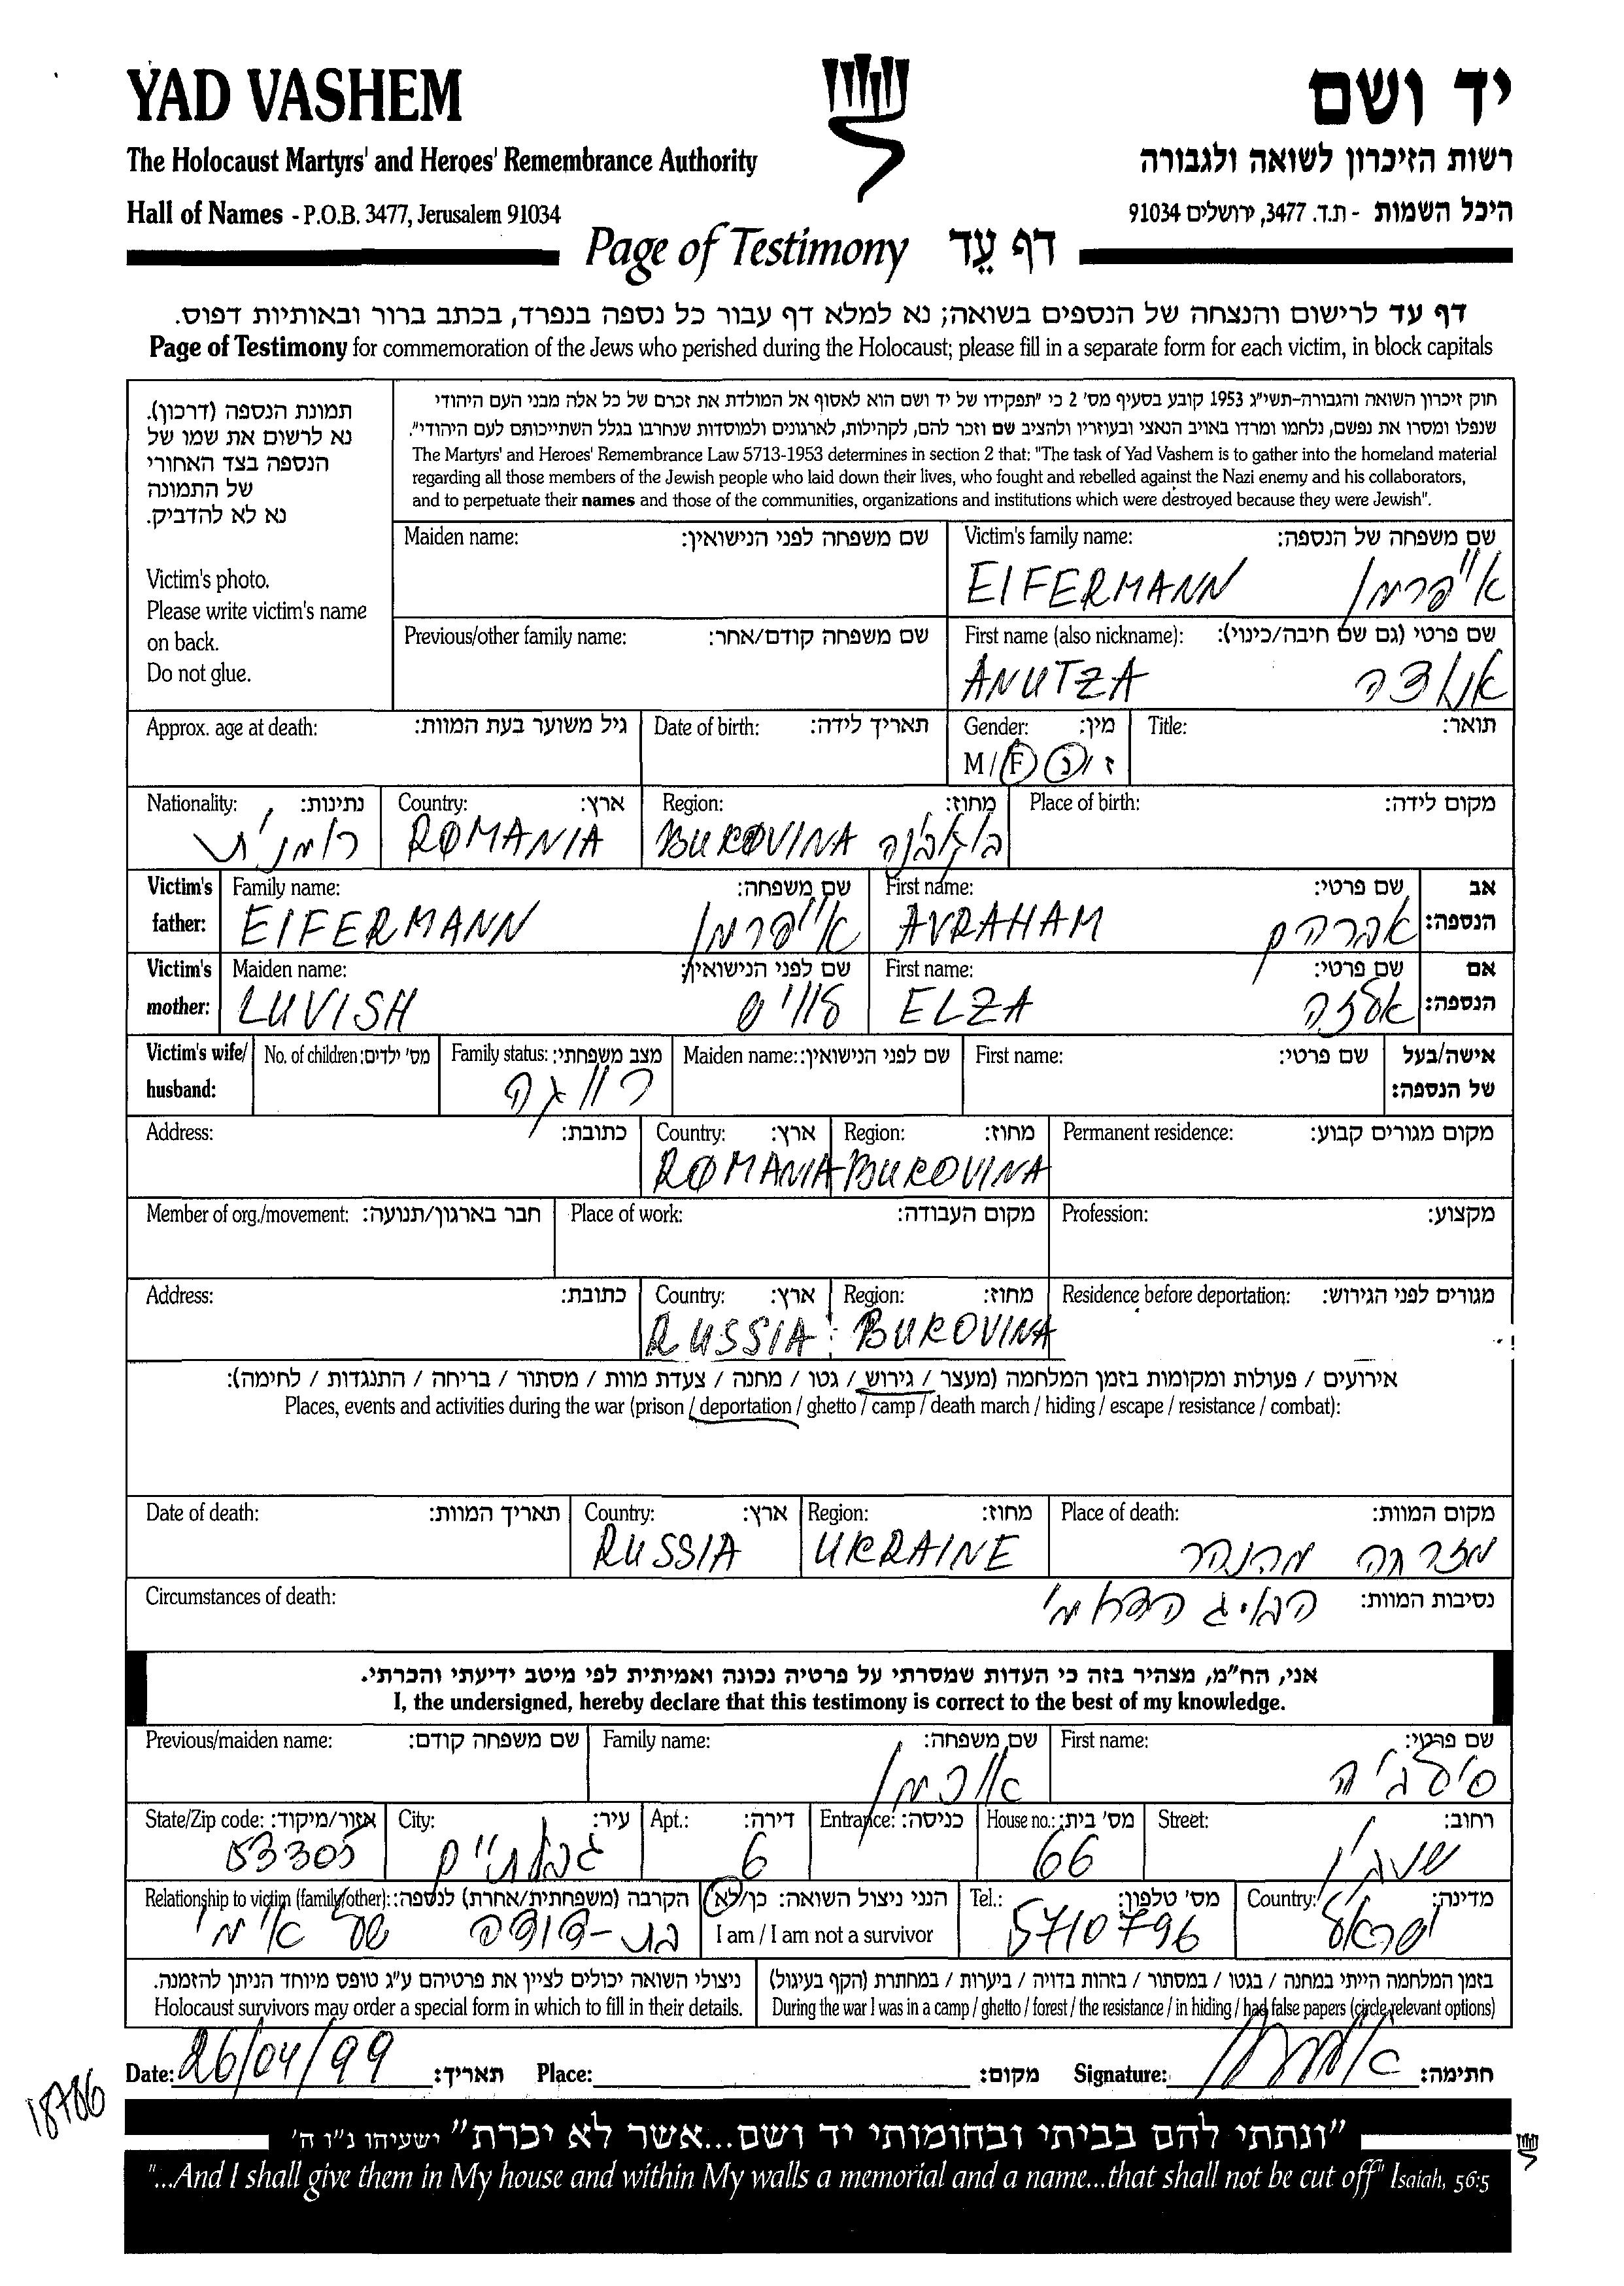 YAD VASHEM
יד ושם
The Holocaust Martyrs' and Heroes' Remembrance Authority
רשות הזיכרון לשואה ולגבורה
Hall of Names - P.O.B. 3477, Jerusalem 91034
היכל השמות - ת.ד. 3477, ירושלים 91034
Page of Testimony דף עֵד
דף עד לרישום והנצחה של הנספים בשואה; נא למלא דף עבור כל נספה בנפרד, בכתב ברור ובאותיות דפוס.
Page of Testimony for commemoration of the Jews who perished during the Holocaust; please fill in a separate form for each victim, in block capitals
תמונת הנספה (דרכון).
נא לרשום את שמו של
הנספה בצד האחורי
של התמונה
נא לא להדביק.
Victim's photo.
Please write victim's name
on back.
Do not glue.
חוק זיכרון השואה והגבורה-תשי"ג 1953 קובע בסעיף מס' 2 כי "תפקידו של יד ושם הוא לאסוף אל המולדת את זכרם של כל אלה מבני העם היהודי
שנפלו ומסרו את נפשם, נלחמו ומרדו באויב הנאצי ובעוזריו ולהציב שם וזכר להם, לקהילות, לארגונים ולמוסדות שנחרבו בגלל השתייכותם לעם היהודי".
The Martyrs' and Heroes' Remembrance Law 5713-1953 determines in section 2 that: "The task of Yad Vashem is to gather into the homeland material
regarding all those members of the Jewish people who laid down their lives, who fought and rebelled against the Nazi enemy and his collaborators,
and to perpetuate their names and those of the communities, organizations and institutions which were destroyed because they were Jewish".
Maiden name: שם משפחה לפני הנישואין:
Victim's family name: שם משפחה של הנספה:
EIFERMANN אייפרמן
Previous/other family name: שם משפחה קודם/אחר:
First name (also nickname): שם פרטי (גם שם חיבה/כינוי):
ANUTZA אנוצה
Approx. age at death: גיל משוער בעת המוות:
Date of birth: תאריך לידה:
Gender: מין:
M / F ז / נ
Title: תואר:
Nationality: נתינות:
רומנית
Country: ארץ:
ROMANIA
Region: מחוז:
BUKOVINA בוקובינה
Place of birth: מקום לידה:
Victim's father: אב הנספה:
Family name: שם משפחה:
EIFERMANN אייפרמן
First name: שם פרטי:
AVRAHAM אברהם
Victim's mother: אם הנספה:
Maiden name: שם לפני הנישואין:
LUVISH לוויש
First name: שם פרטי:
ELZA אלזה
Victim's wife/ husband: אישה/בעל של הנספה:
No. of children: מס' ילדים:
Family status: מצב משפחתי:
רווקה
Maiden name: שם לפני הנישואין:
First name: שם פרטי:
Address: כתובת:
Country: ארץ:
ROMANIA
Region: מחוז:
BUKOVINA
Permanent residence: מקום מגורים קבוע:
Member of org./movement: חבר בארגון/תנועה:
Place of work: מקום העבודה:
Profession: מקצוע:
Address: כתובת:
Country: ארץ:
RUSSIA
Region: מחוז:
BUKOVINA
Residence before deportation: מגורים לפני הגירוש:
אירועים / פעולות ומקומות בזמן המלחמה (מעצר / גירוש / גטו / מחנה / צעדת מוות / מסתור / בריחה / התנגדות / לחימה):
Places, events and activities during the war (prison / deportation / ghetto / camp / death march / hiding / escape / resistance / combat):
Date of death: תאריך המוות:
Country: ארץ:
RUSSIA
Region: מחוז:
UKRAINE
Place of death: מקום המוות:
מזרחה מהנהר
Circumstances of death: נסיבות המוות:
אני, הח"מ, מצהיר בזה כי העדות שמסרתי על פרטיה נכונה ואמיתית לפי מיטב ידיעתי והכרתי.
I, the undersigned, hereby declare that this testimony is correct to the best of my knowledge.
Previous/maiden name: שם משפחה קודם:
Family name: שם משפחה:
First name: שם פרטי:
סילביה
State/Zip code: אזור/מיקוד:
53305
City: עיר:
גבעתיים
Apt.: דירה:
6
Entrance: כניסה:
House no.: מס' בית:
66
Street: רחוב:
Relationship to victim (family/other): הקרבה (משפחתית/אחרת) לנספה:
בת-דודה של אימי
הנני ניצול השואה: כן/לא
I am / I am not a survivor
Tel.: מס' טלפון:
5710796
Country: מדינה:
ישראל
ניצולי השואה יכולים לציין את פרטיהם ע"ג טופס מיוחד הניתן להזמנה.
Holocaust survivors may order a special form in which to fill in their details.
בזמן המלחמה הייתי במחנה / בגטו / במסתור / בזהות בדויה / ביערות / במחתרת (הקף בעיגול)
During the war I was in a camp / ghetto / forest / the resistance / in hiding / had false papers (circle relevant options)
Date: 26/04/99 תאריך: Place: מקום: Signature: חתימה:
18786
"ונתתי להם בביתי ובחומותי יד ושם...אשר לא יכרת" ישעיהו נ"ו ה'
"...And I shall give them in My house and within My walls a memorial and a name...that shall not be cut off" Isaiah, 56:5